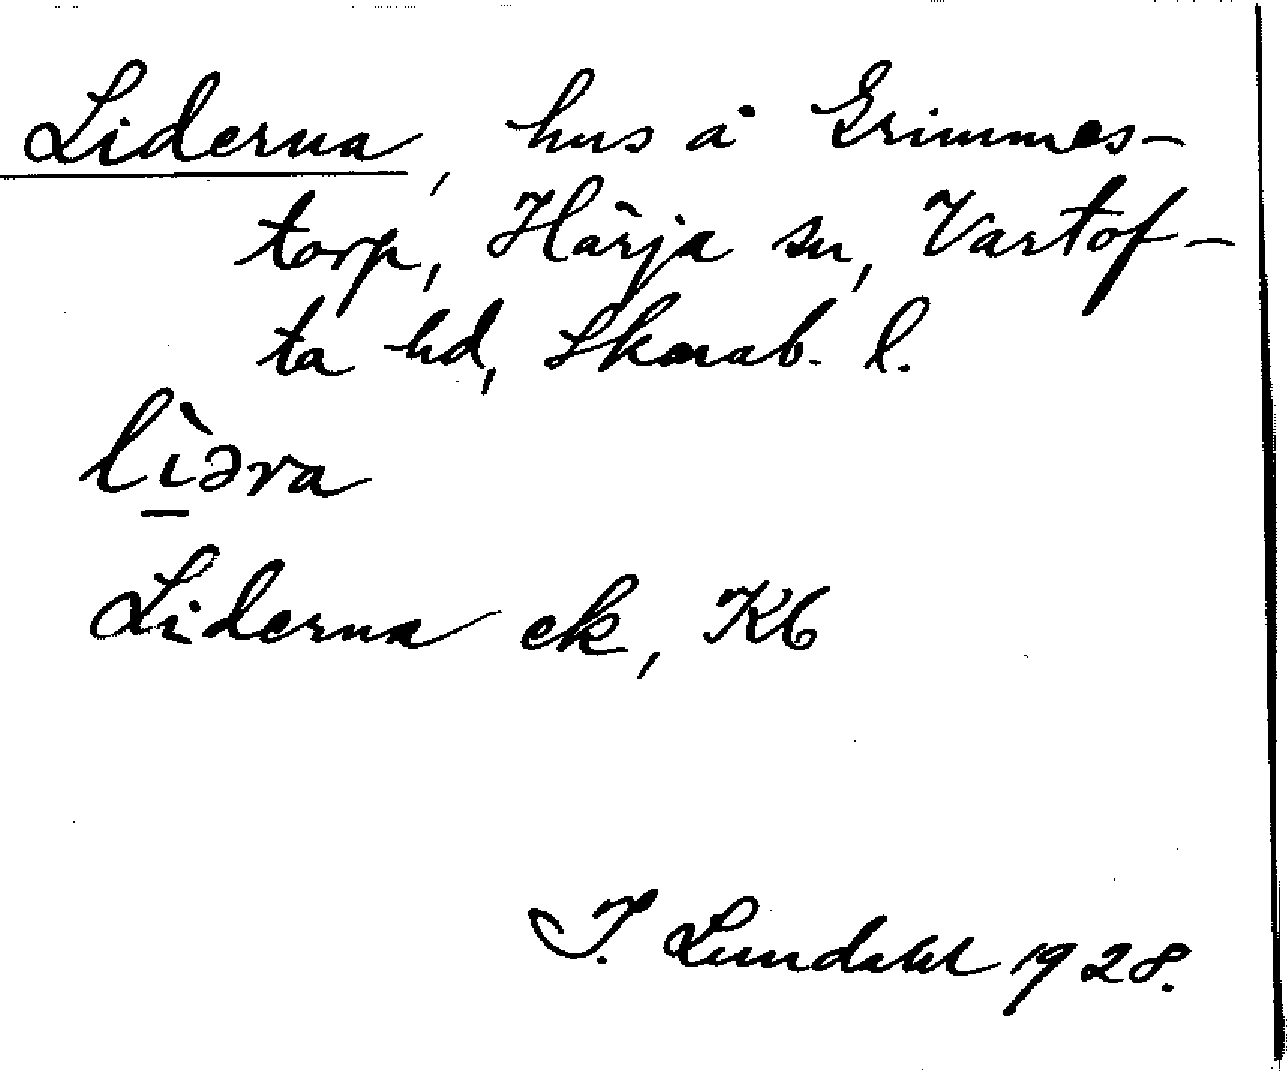 Liderna, hus å Grimmes-
torp, Härja sn, Vartof-
ta hd, Skarab. l.
lìəra
Liderna ek, Kb
I. Lundahl 1928.